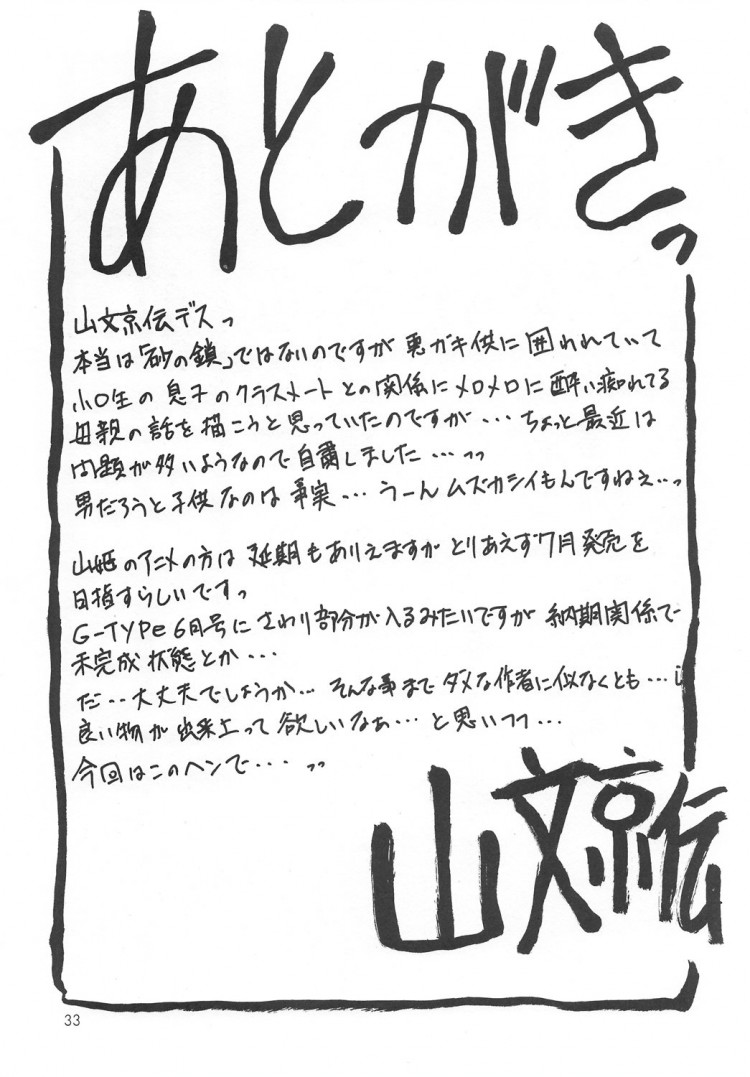 あとがきっ
山文京伝デスっ
本当は「砂の鎖」ではないのですが 悪ガキ供に囲われれていて
小〇生の息子のクラスメートとの関係にメロメロに酔い痴れてる
母親の話を描こうと思っていたのですが・・・ちょっと最近は
問題が多いようなので自粛しました・・・っっ
男だろうと子供なのは事実・・・うーんムズカシイもんですねぇ・・っ
山姫のアニメの方は延期もありえますがとりあえず7月発売を
目指すらしいですっ
G-TYPe 6月号にさわり部分が入るみたいですが納期関係で
未完成状態とか・・・
だ・・大丈夫でしょうか・・・そんな事までダメな作者に似なくとも・・・
良い物が出来上って欲しいなぁ・・・と思いつつ・・・
今回はこのヘンで・・・っっ
山文京伝
33